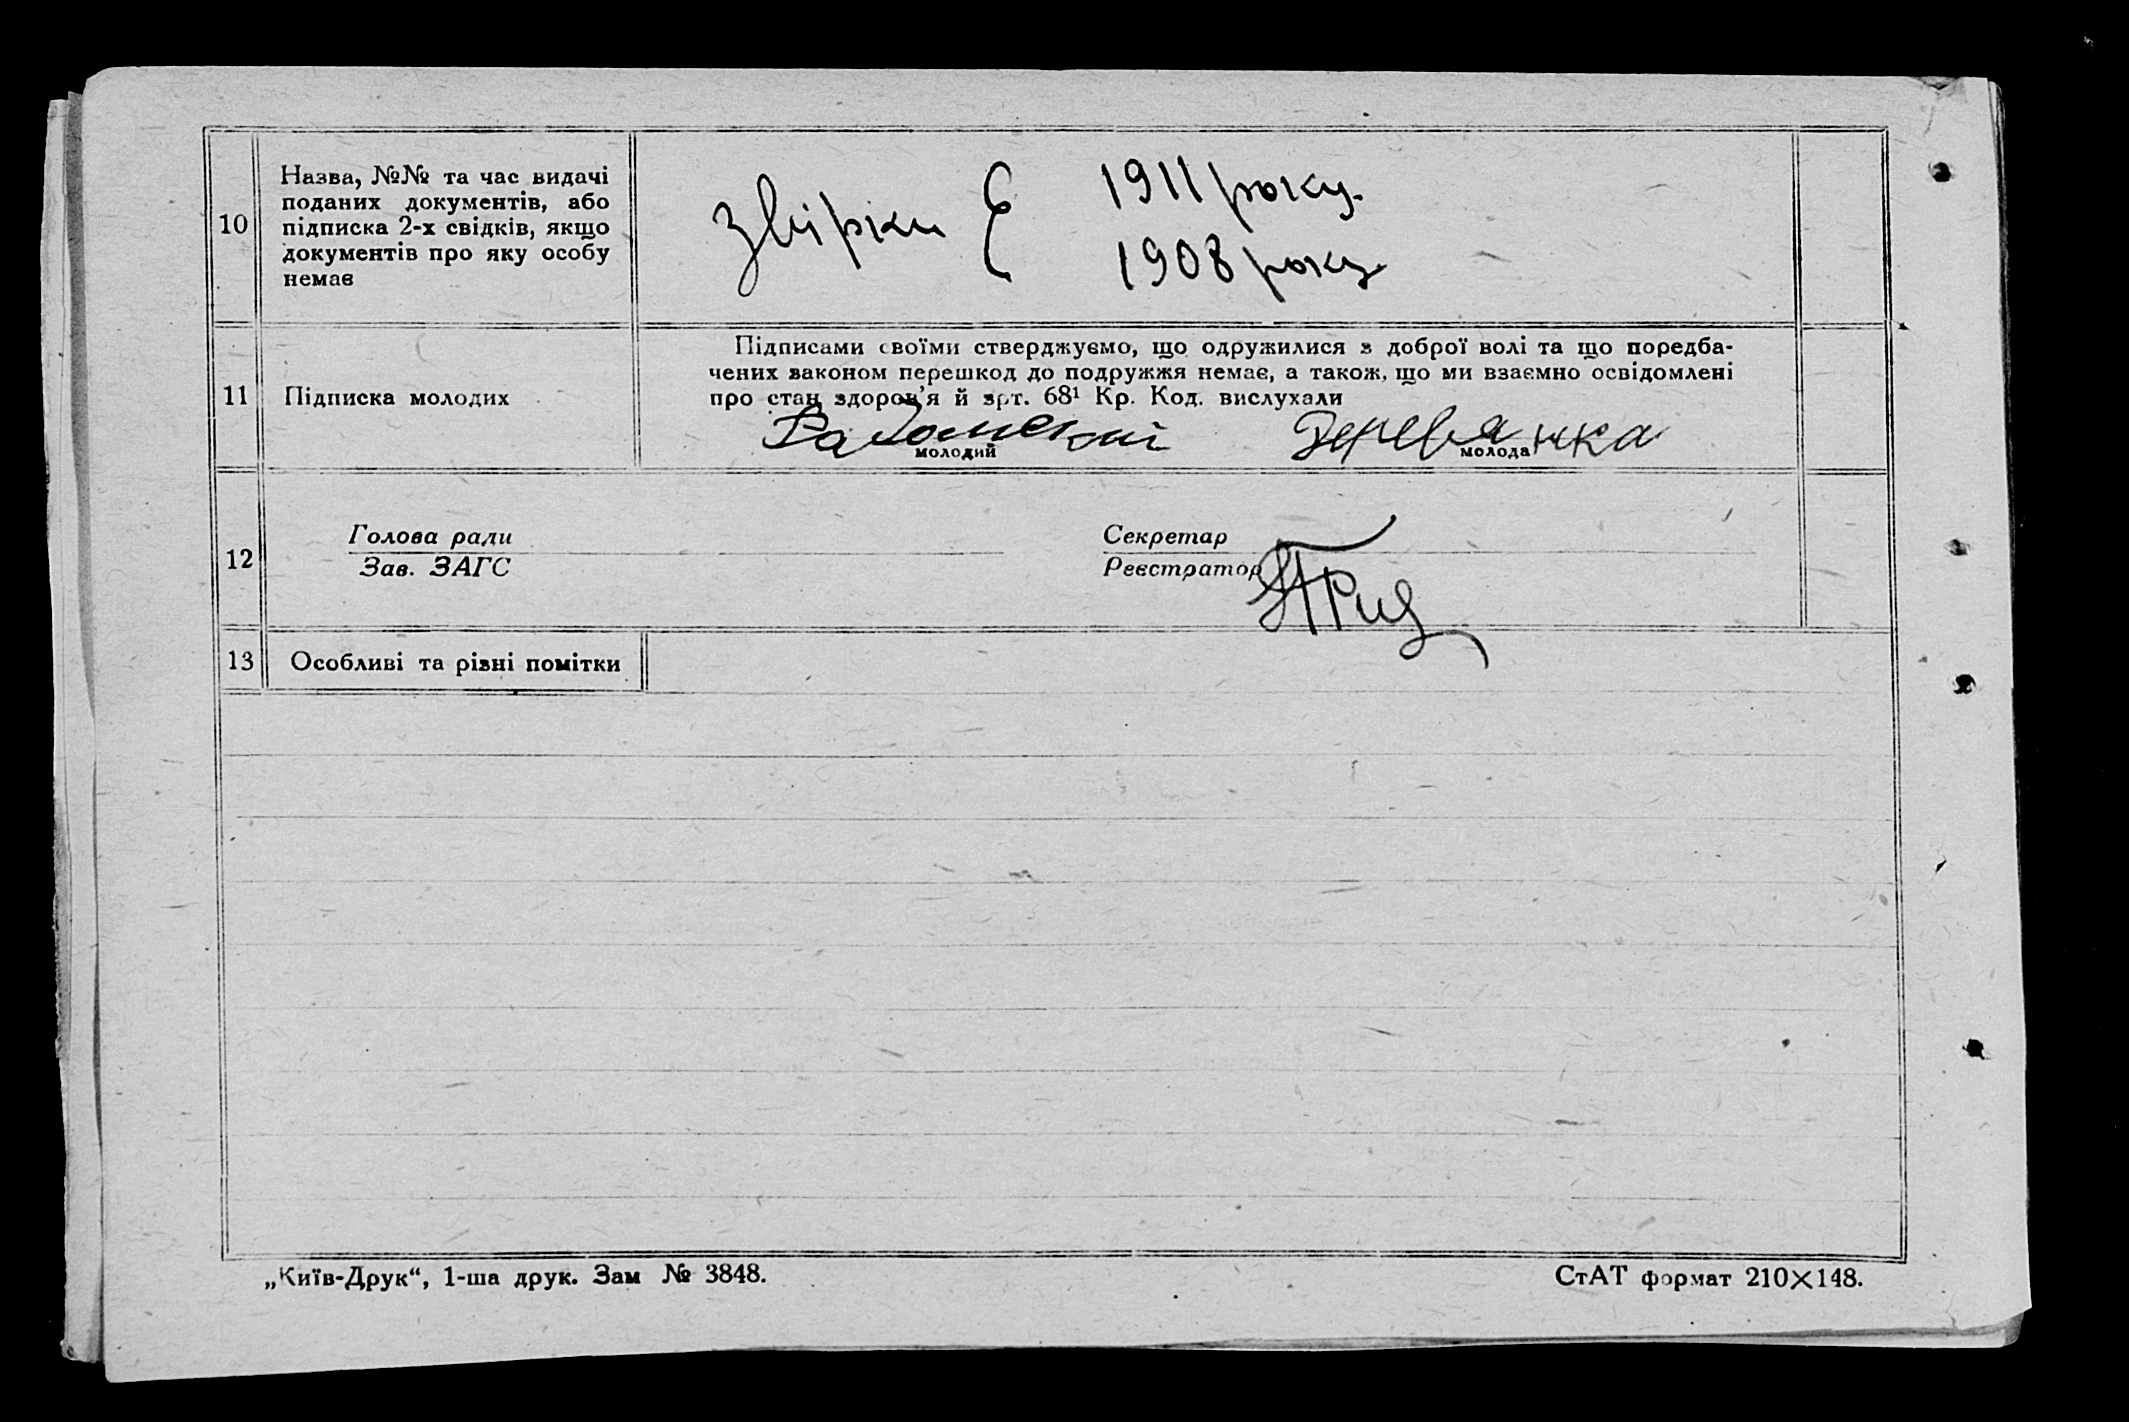 10
Назва, №№ та час видачі
поданих документів, або
підписка 2-х свідків, якщо
документів про яку особу
немає
звірки Є
1911 року.
1908 року
11
Підписка молодих
Підписами своїми стверджуємо, що одружилися з доброї волі та що поредба-
чених законом перешкод до подружжя немає, а також, що ми взаємно освідомлені
про стан здоров'я й арт. 68¹ Кр. Код. вислухали
Радомский
Деревянка
молодий
молода
12
Голова ради
Зав. ЗАГС
Секретар
Реєстратор
13
Особливі та різні помітки
„Київ-Друк“, 1-ша друк. Зам № 3848.
СтАТ формат 210×148.